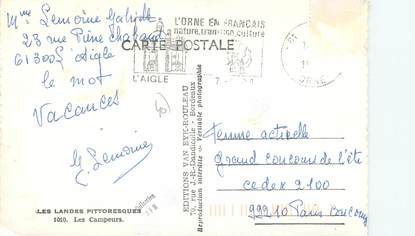 Mme Lemoine Gabriel
23 rue Pierre
61300 L'Aigle
le mot
Vacances
G. Lemoine
L'ORNE EN FRANCAIS
nature, tradition, culture
CARTE POSTALE
L'AIGLE
ORNE
EDITIONS VAN EYC-ROULEAU
70, rue J.-R.-Dandicolle - Bordeaux
Reproduction interdite - Véritable photographie
Femme actuelle
grand concours de l'été
cedex 2100
99210 Paris concours
LES LANDES PITTORESQUES
1010. Les Campeurs.